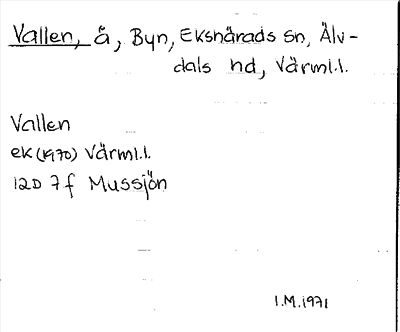 Vallen, å, Byn, Ekshärads sn, Älv-
dals hd, Värml.l.
Vallen
ek (1970) Värml.l.
12D 7f Mussjön
I.M. 1971